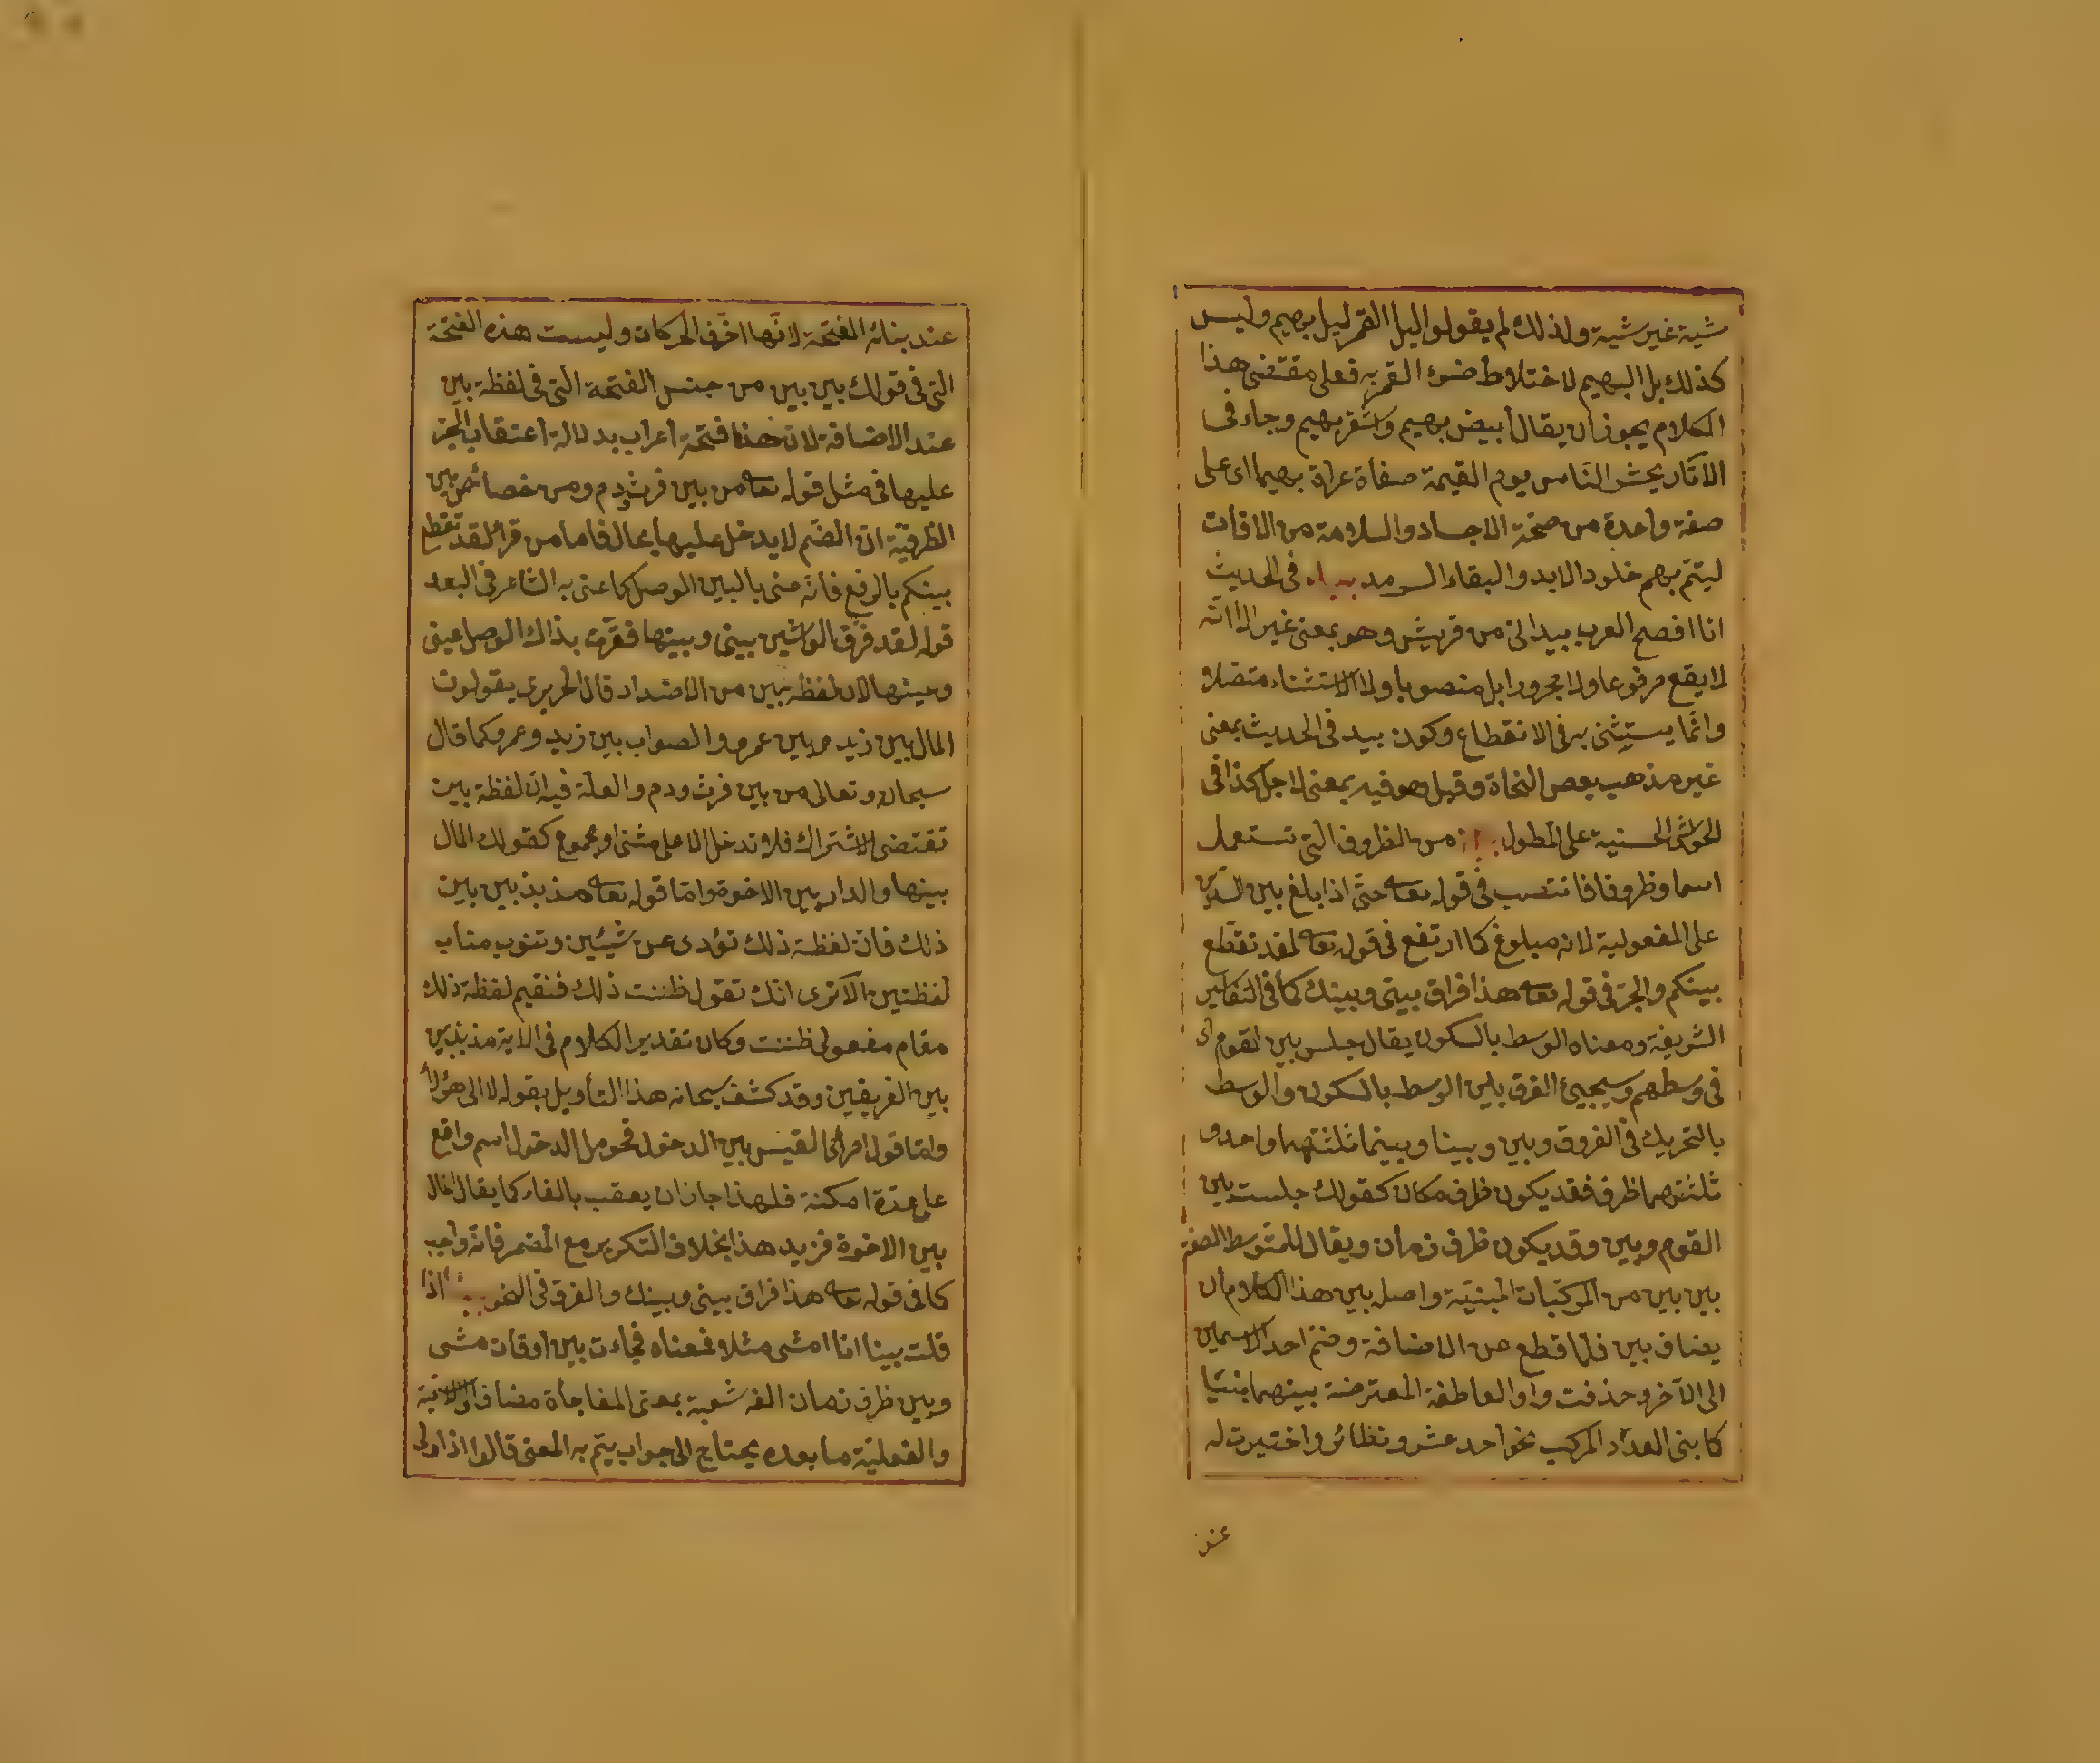 شية غير شية ولذلك لم يقولوا لليل القمر ليل بهيم وليس
كذلك بل البهيم لاختلاط ضوء القمر به فعلى مقتضى هذا
الكلام يجوز ان يقال ابيض بهيم واشقر بهيم وجاء فى
الآثار يحشر الناس يوم القيمة حفاة عراة بهيما اى على
صفة واحدة من صحة الاجساد والسلامة من الافات
ليتم بهم خلود الابد والبقاء السرمد بيد فى الحديث
انا افصح العرب بيد انى من قريش وهو بمعنى غير الا انه
لا يقع مرفوعا ولا مجرورا بل منصوبا ولا الاستثناء متصلا و
وانما يستثنى به فى الانقطاع وكون بيد فى الحديث بمعنى
غير مذهب بعض النحاة وقيل هو فيه بمعنى لاجل كذا فى
الحواشى الحسنية على المطول من الظروف التى تستعمل
اسما وظرفا فانتصب فى قوله تعالى حتى اذا بلغ بين السدين
على المفعولية لانه مبلوغ كما ارتفع فى قوله تعالى لقد تقطع
بينكم والجر فى قوله تعالى هذا فراق بينى وبينك كما فى التفاسير
الشريفة ومعناه الوسط بالسكون يقال جلس بين القوم اى
فى وسطهم وسيجيئ الفرق بين الوسط بالسكون والوسط
بالتحريك فى الفروق وبين وبينا وبينما ثلثتهما واحد و
ثلثتهما ظرف فقد يكون ظرف مكان كقولك جلست بين
القوم وبين وقد يكون ظرف زمان ويقال للمتوسط الصفة
بين بين من المركبات المبنية واصله بين هذا الكلام ان
يضاف بين فلما قطع عن الاضافة وضم احد الاسمين
الى الآخر وحذفت واو العاطفة المعترضة بينهما بنيا
كما بنى العدد المركب نحو احد عشر ونظائر واختيرت له
عند
عند بنائه الفتحة لانها اخف الحركات وليست هذه الفتحة
التى فى قولك بين بين من جنس الفتحة التى فى لفظة بين
عند الاضافة لان هذا فتحة اعراب بدلالة اعتقاب الجر
عليها فى مثل قوله تعالى من بين فرث ودم ومن خصائص بين
الظرفية ان الضم لا يدخل عليها بحال فاما من قرأ لقد تقطع
بينكم بالرفع فانه عنى بالبين الوصل كما عنى به الشاعر فى البعد
قوله لقد فرق الواشين بينى وبينها فقرت بذاك الوصل عينى
وعينها لان لفظة بين من الاضداد قال الحريرى يقولون
المال بين زيد وبين عمرو والصواب بين زيد وعمرو كما قال
سبحانه وتعالى من بين فرث ودم والعلة فيه ان لفظة بين
تقتضى الاشتراك فلا تدخل الا على مثنى او مجموع كقولك المال
بينهما والدار بين الاخوة واما قوله تعالى مذبذبين بين
ذلك فان لفظة ذلك تؤدى عن شيئين وتنوب مناب
لفظتين الا ترى انك تقول ظننت ذلك فتقيم لفظة ذلك
مقام مفعولى ظننت وكان تقدير الكلام فى الاية مذبذبين
بين الفريقين وقد كشف سبحانه هذا التأويل بقوله لا الى هؤلاء
واما قول امرئ القيس بين الدخول فحومل الدخول اسم واقع
على عدة امكنة فلهذا جاز ان يعقب بالفاء كما يقال المال
بين الاخوة فزيد هذا بخلاف التكرير مع المضمر فانه واجب
كما فى قوله تعالى هذا فراق بينى وبينك والفرق فى النحو اذا
قلت بينا انا امشى مثلا فمعناه فجاءت بين اوقات مشى
وبين ظرف زمان الفه شعبة بمعنى المفاجأة مضاف الى الاسمية
والفعلية ما بعده يحتاج الى جواب يتم به المعنى قالوا اذا ولى